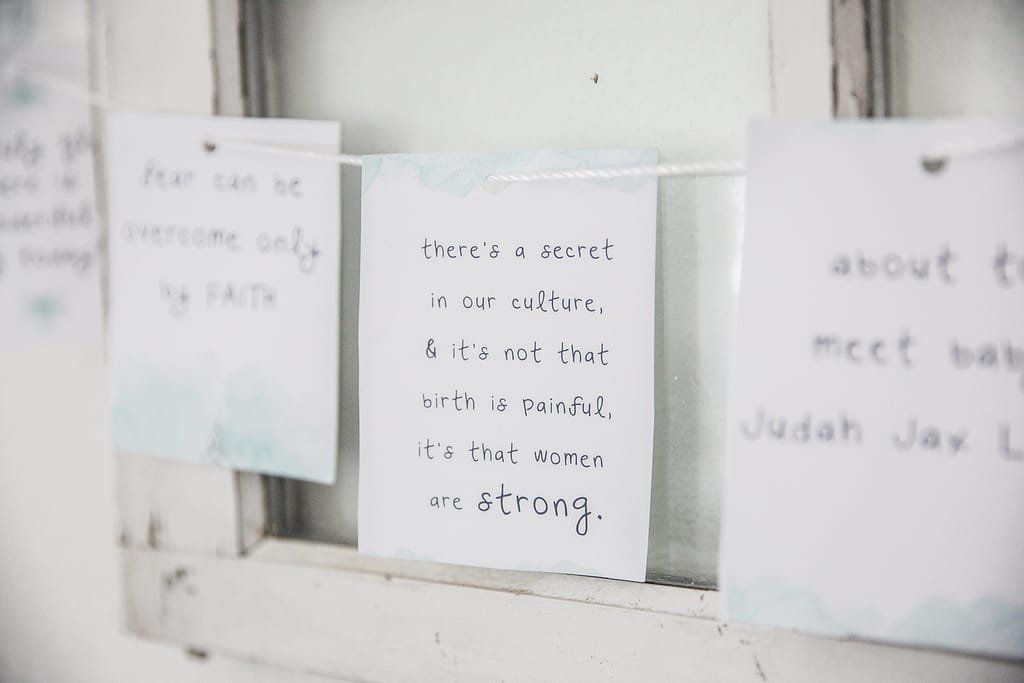 fear can be
overcome only
by FAITH
there's a secret
in our culture,
& it's not that
birth is painful,
it's that women
are strong.
about
meet
Judah Jax